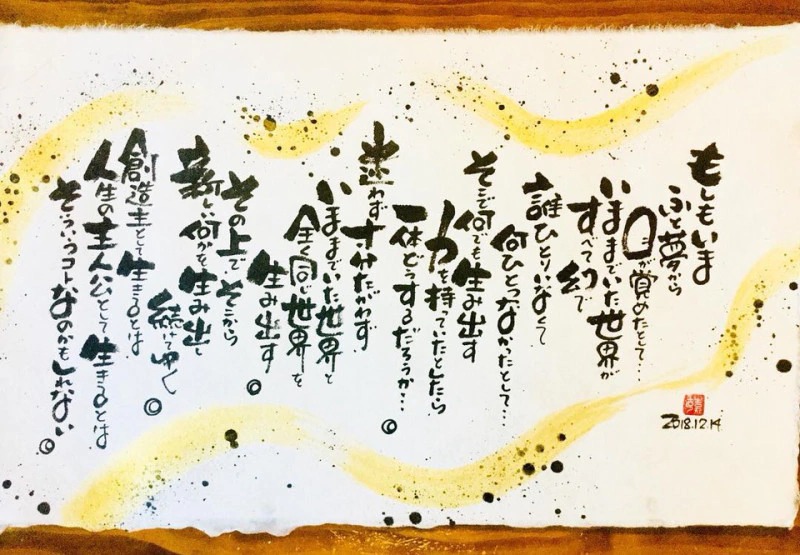 もしもいま
ふと夢から
目が覚めたとて…
いままでいた世界が
すべて幻で
誰ひとりいなくて
何ひとつなかったとして…
そこで何でも生み出す
力を持っていたとしたら
一体どうするだろうか…◎
迷わず寸分たがわず
いままでいた世界と
全く同じ世界を
生み出す◎
その上でそこから
新しい何かを生み出し
続けてゆく◎
創造主として生きるとは
人生の主人公として生きるとは
そういうコトなのかもしれない◎
2018.12.14